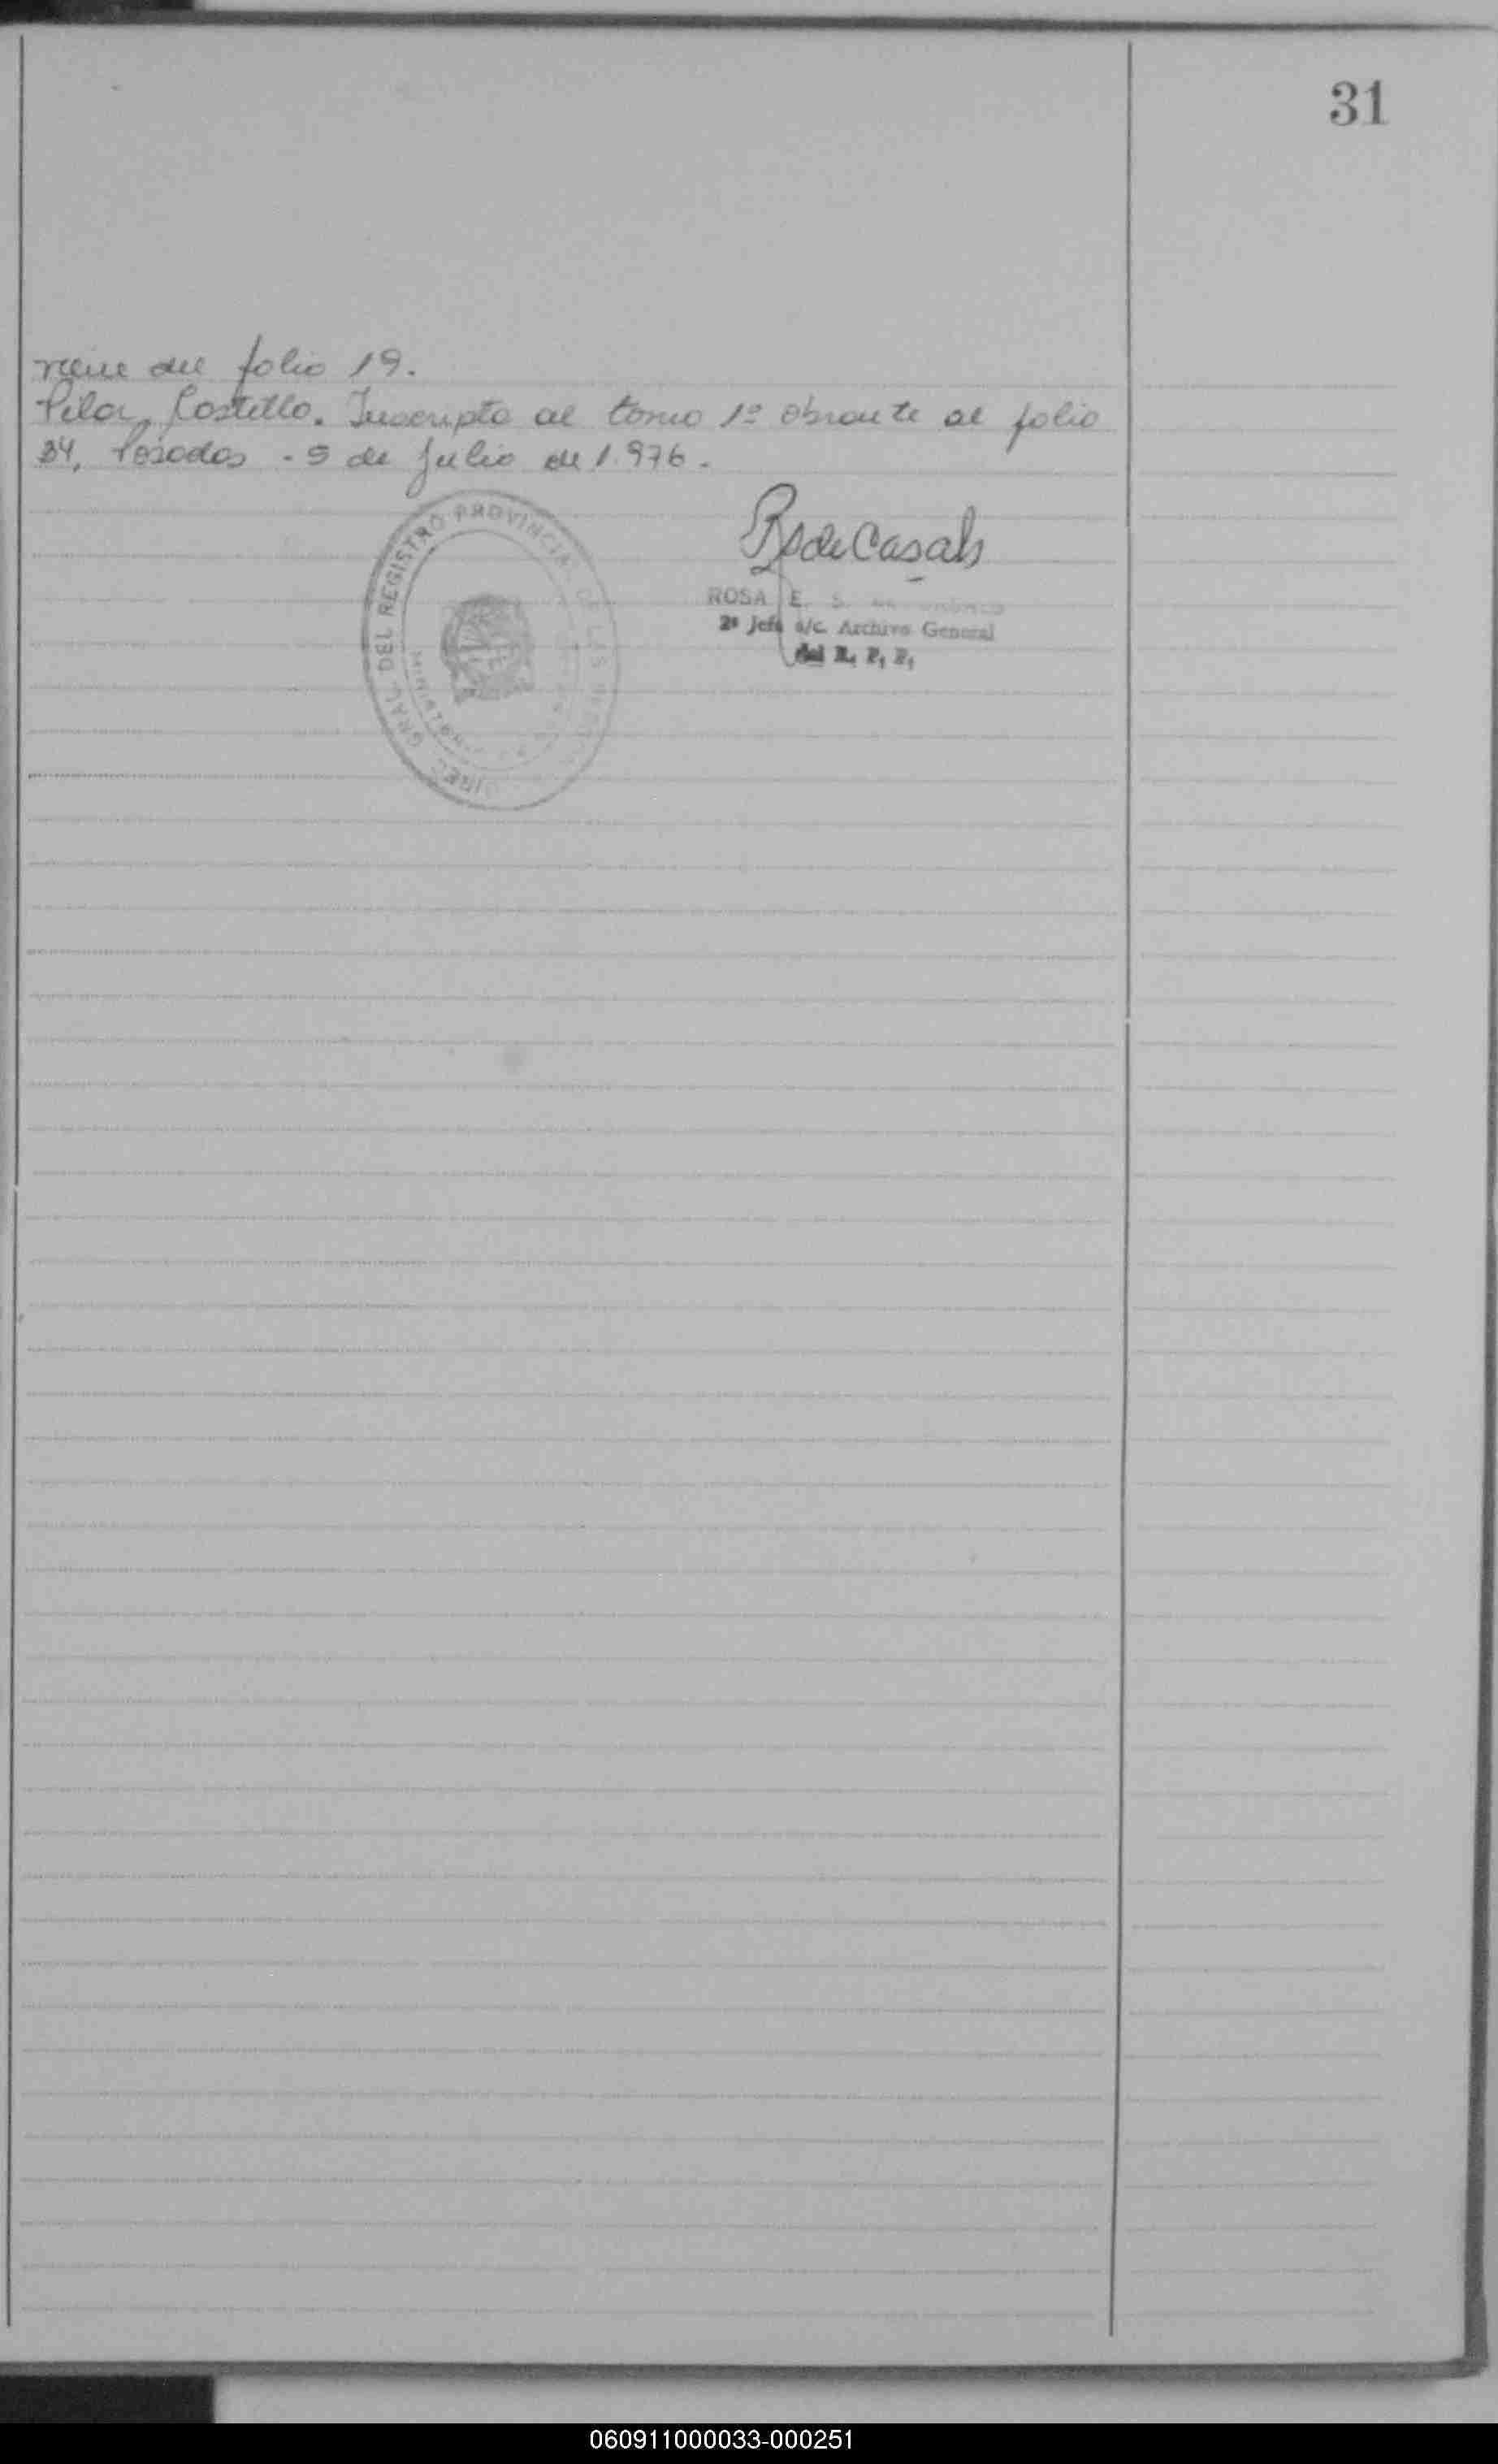 31
viene del folio 19.
Pilar, Costello. Inscripto al tomo 1º obrante al folio
34, Posadas - 5 de julio de 1.976.
RSdeCasals
ROSA E. S.
2º Jefe a/c. Archivo General
del R. P. P.
DIREC. GRAL. DEL REGISTRO PROVINCIAL DE LAS
MINISTERIO
060911000033-000251